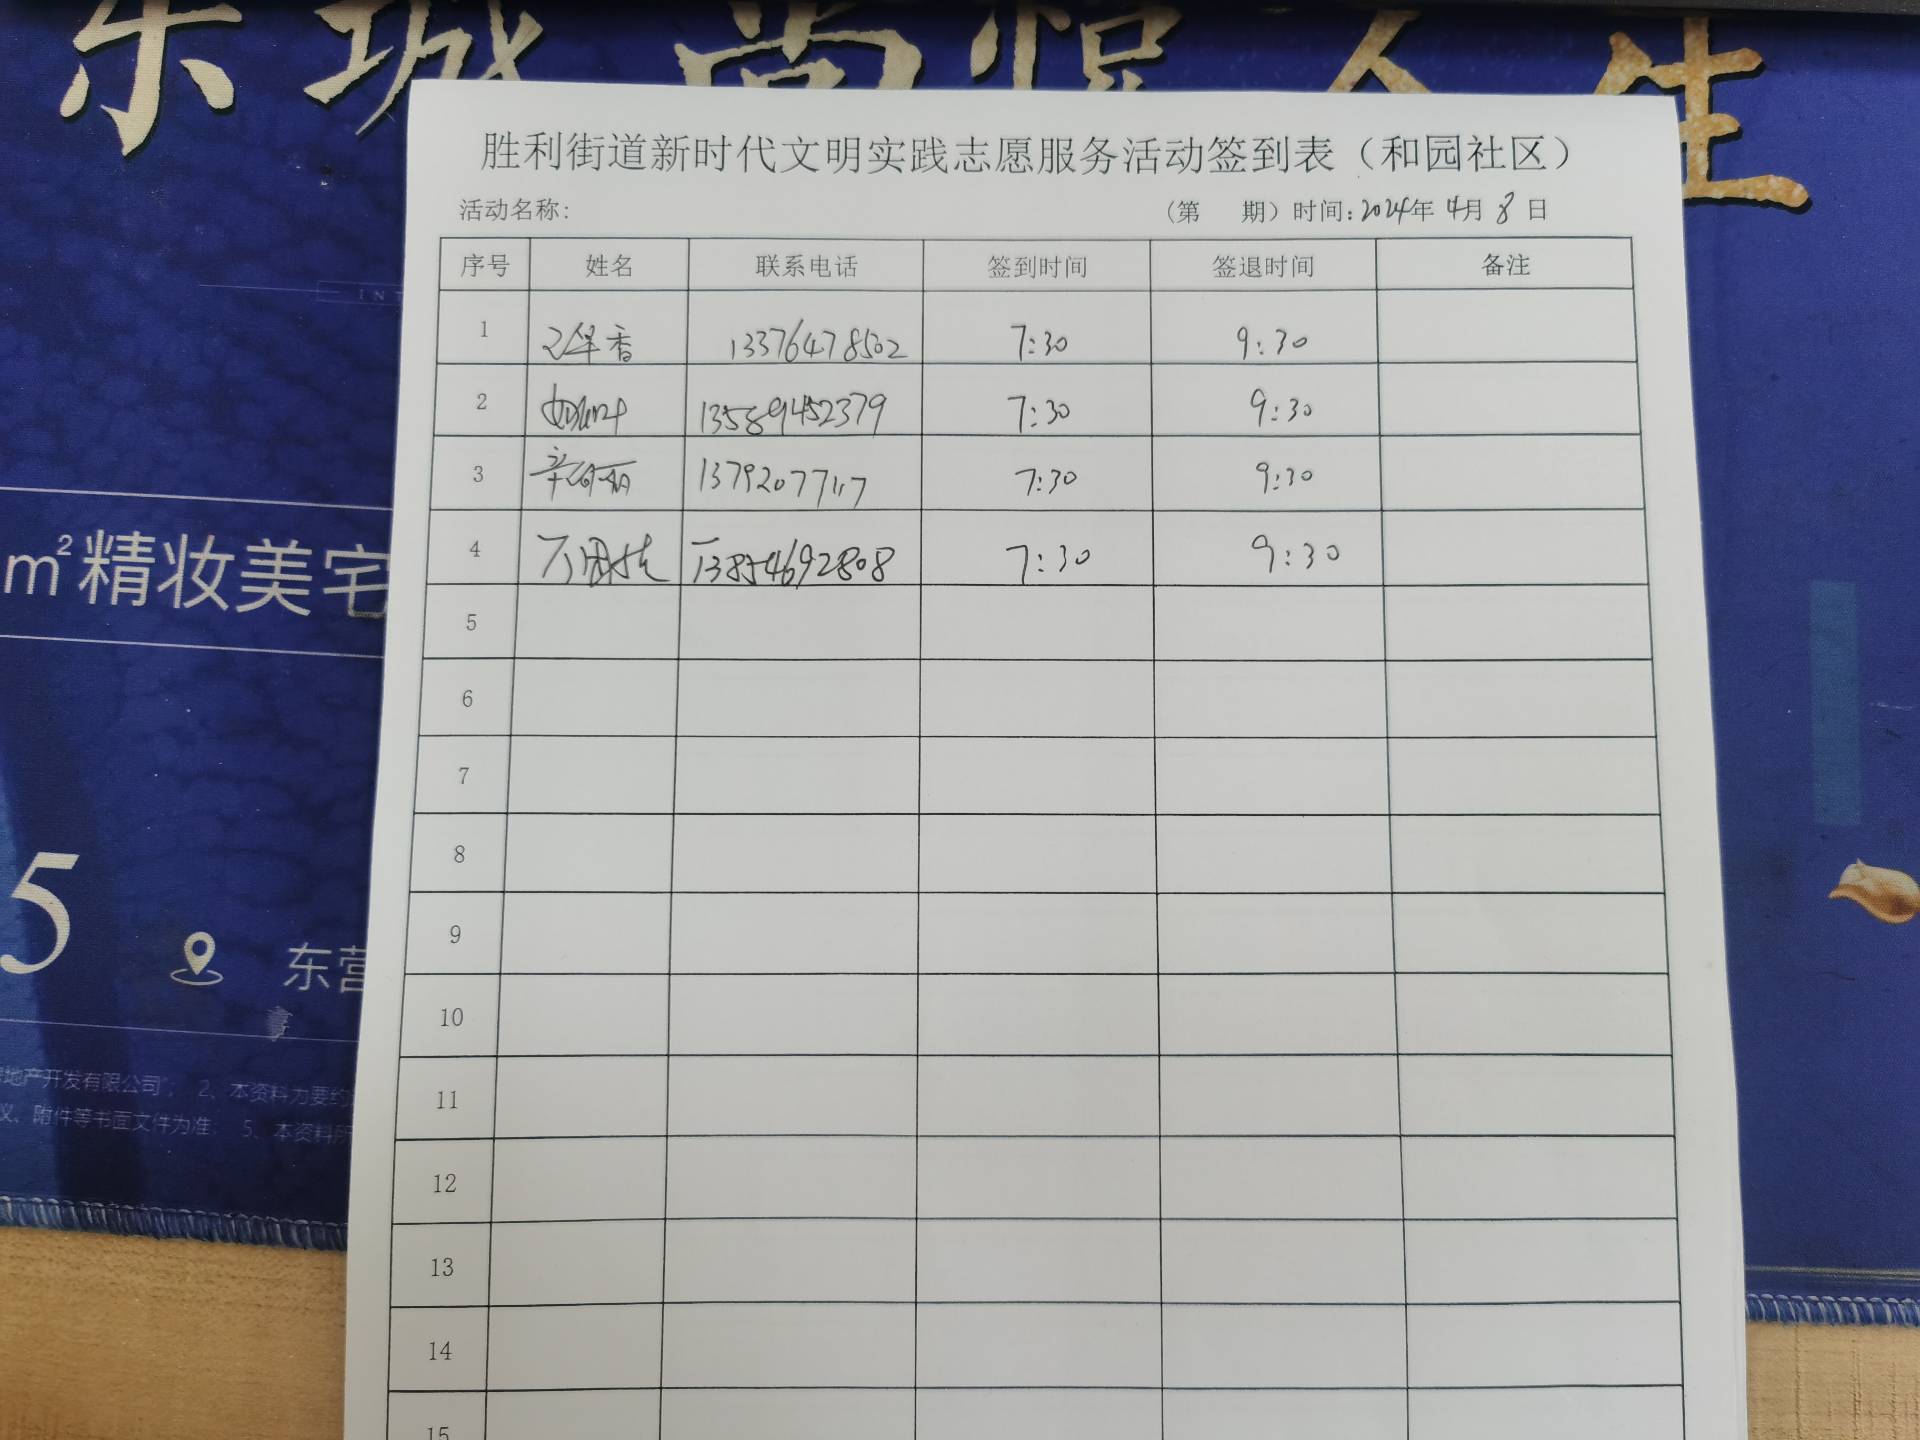 东城 尚 人生
胜利街道新时代文明实践志愿服务活动签到表（和园社区）
活动名称： （第 期）时间:2024年 4月 8 日
序号 姓名 联系电话 签到时间 签退时间 备注
1 香 13376478502 7:30 9:30
2 13589452379 7:30 9:30
3 辛 丽 7:30 9:30
4 13854692808 7:30 9:30
5
6
7
8
9
10
11
12
13
14
15
INT
m²精妆美宅
5
东营
房地产开发有限公司"； 2、本资料为要约
议、附件等书面文件为准； 5、本资料所